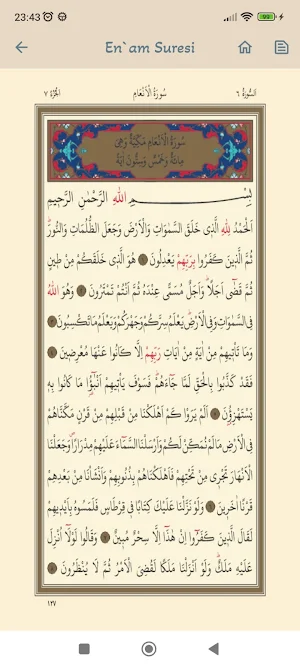 23:43
En`am Suresi
الجزء ٧
سورة الأنعام
السورة ٦
سُورَةُ الْاَنْعَامِ مَكِّيَّةٌ وَهِيَ
مِائَةٌ وَخَمْسٌ وَسِتُّونَ اٰيَةً
بِسْمِ اللّٰهِ الرَّحْمٰنِ الرَّحِيمِ
اَلْحَمْدُ لِلّٰهِ الَّذِي خَلَقَ السَّمٰوَاتِ وَالْاَرْضَ وَجَعَلَ الظُّلُمَاتِ وَالنُّورَ
ثُمَّ الَّذِينَ كَفَرُوا بِرَبِّهِمْ يَعْدِلُونَ ١ هُوَ الَّذِي خَلَقَكُمْ مِنْ طِينٍ
ثُمَّ قَضٰٓى اَجَلًا وَاَجَلٌ مُسَمًّى عِنْدَهُ ثُمَّ اَنْتُمْ تَمْتَرُونَ ٢ وَهُوَ اللّٰهُ
فِي السَّمٰوَاتِ وَفِي الْاَرْضِ يَعْلَمُ سِرَّكُمْ وَجَهْرَكُمْ وَيَعْلَمُ مَا تَكْسِبُونَ ٣
وَمَا تَأْتِيهِمْ مِنْ اٰيَةٍ مِنْ اٰيَاتِ رَبِّهِمْ اِلَّا كَانُوا عَنْهَا مُعْرِضِينَ ٤
فَقَدْ كَذَّبُوا بِالْحَقِّ لَمَّا جَٓاءَهُمْ فَسَوْفَ يَأْتِيهِمْ اَنْبٰٓؤُ۬ا مَا كَانُوا بِهِ
يَسْتَهْزِؤُ۫نَ ٥ اَلَمْ يَرَوْا كَمْ اَهْلَكْنَا مِنْ قَبْلِهِمْ مِنْ قَرْنٍ مَكَّنَّاهُمْ
فِي الْاَرْضِ مَا لَمْ نُمَكِّنْ لَكُمْ وَاَرْسَلْنَا السَّمَٓاءَ عَلَيْهِمْ مِدْرَارًا وَجَعَلْنَا
الْاَنْهَارَ تَجْرِي مِنْ تَحْتِهِمْ فَاَهْلَكْنَاهُمْ بِذُنُوبِهِمْ وَاَنْشَأْنَا مِنْ بَعْدِهِمْ
قَرْنًا اٰخَرِينَ ٦ وَلَوْ نَزَّلْنَا عَلَيْكَ كِتَابًا فِي قِرْطَاسٍ فَلَمَسُوهُ بِاَيْدِيهِمْ
لَقَالَ الَّذِينَ كَفَرُٓوا اِنْ هٰذَٓا اِلَّا سِحْرٌ مُبِينٌ ٧ وَقَالُوا لَوْلَٓا اُنْزِلَ
عَلَيْهِ مَلَكٌ وَلَوْ اَنْزَلْنَا مَلَكًا لَقُضِيَ الْاَمْرُ ثُمَّ لَا يُنْظَرُونَ ٨
١٢٧